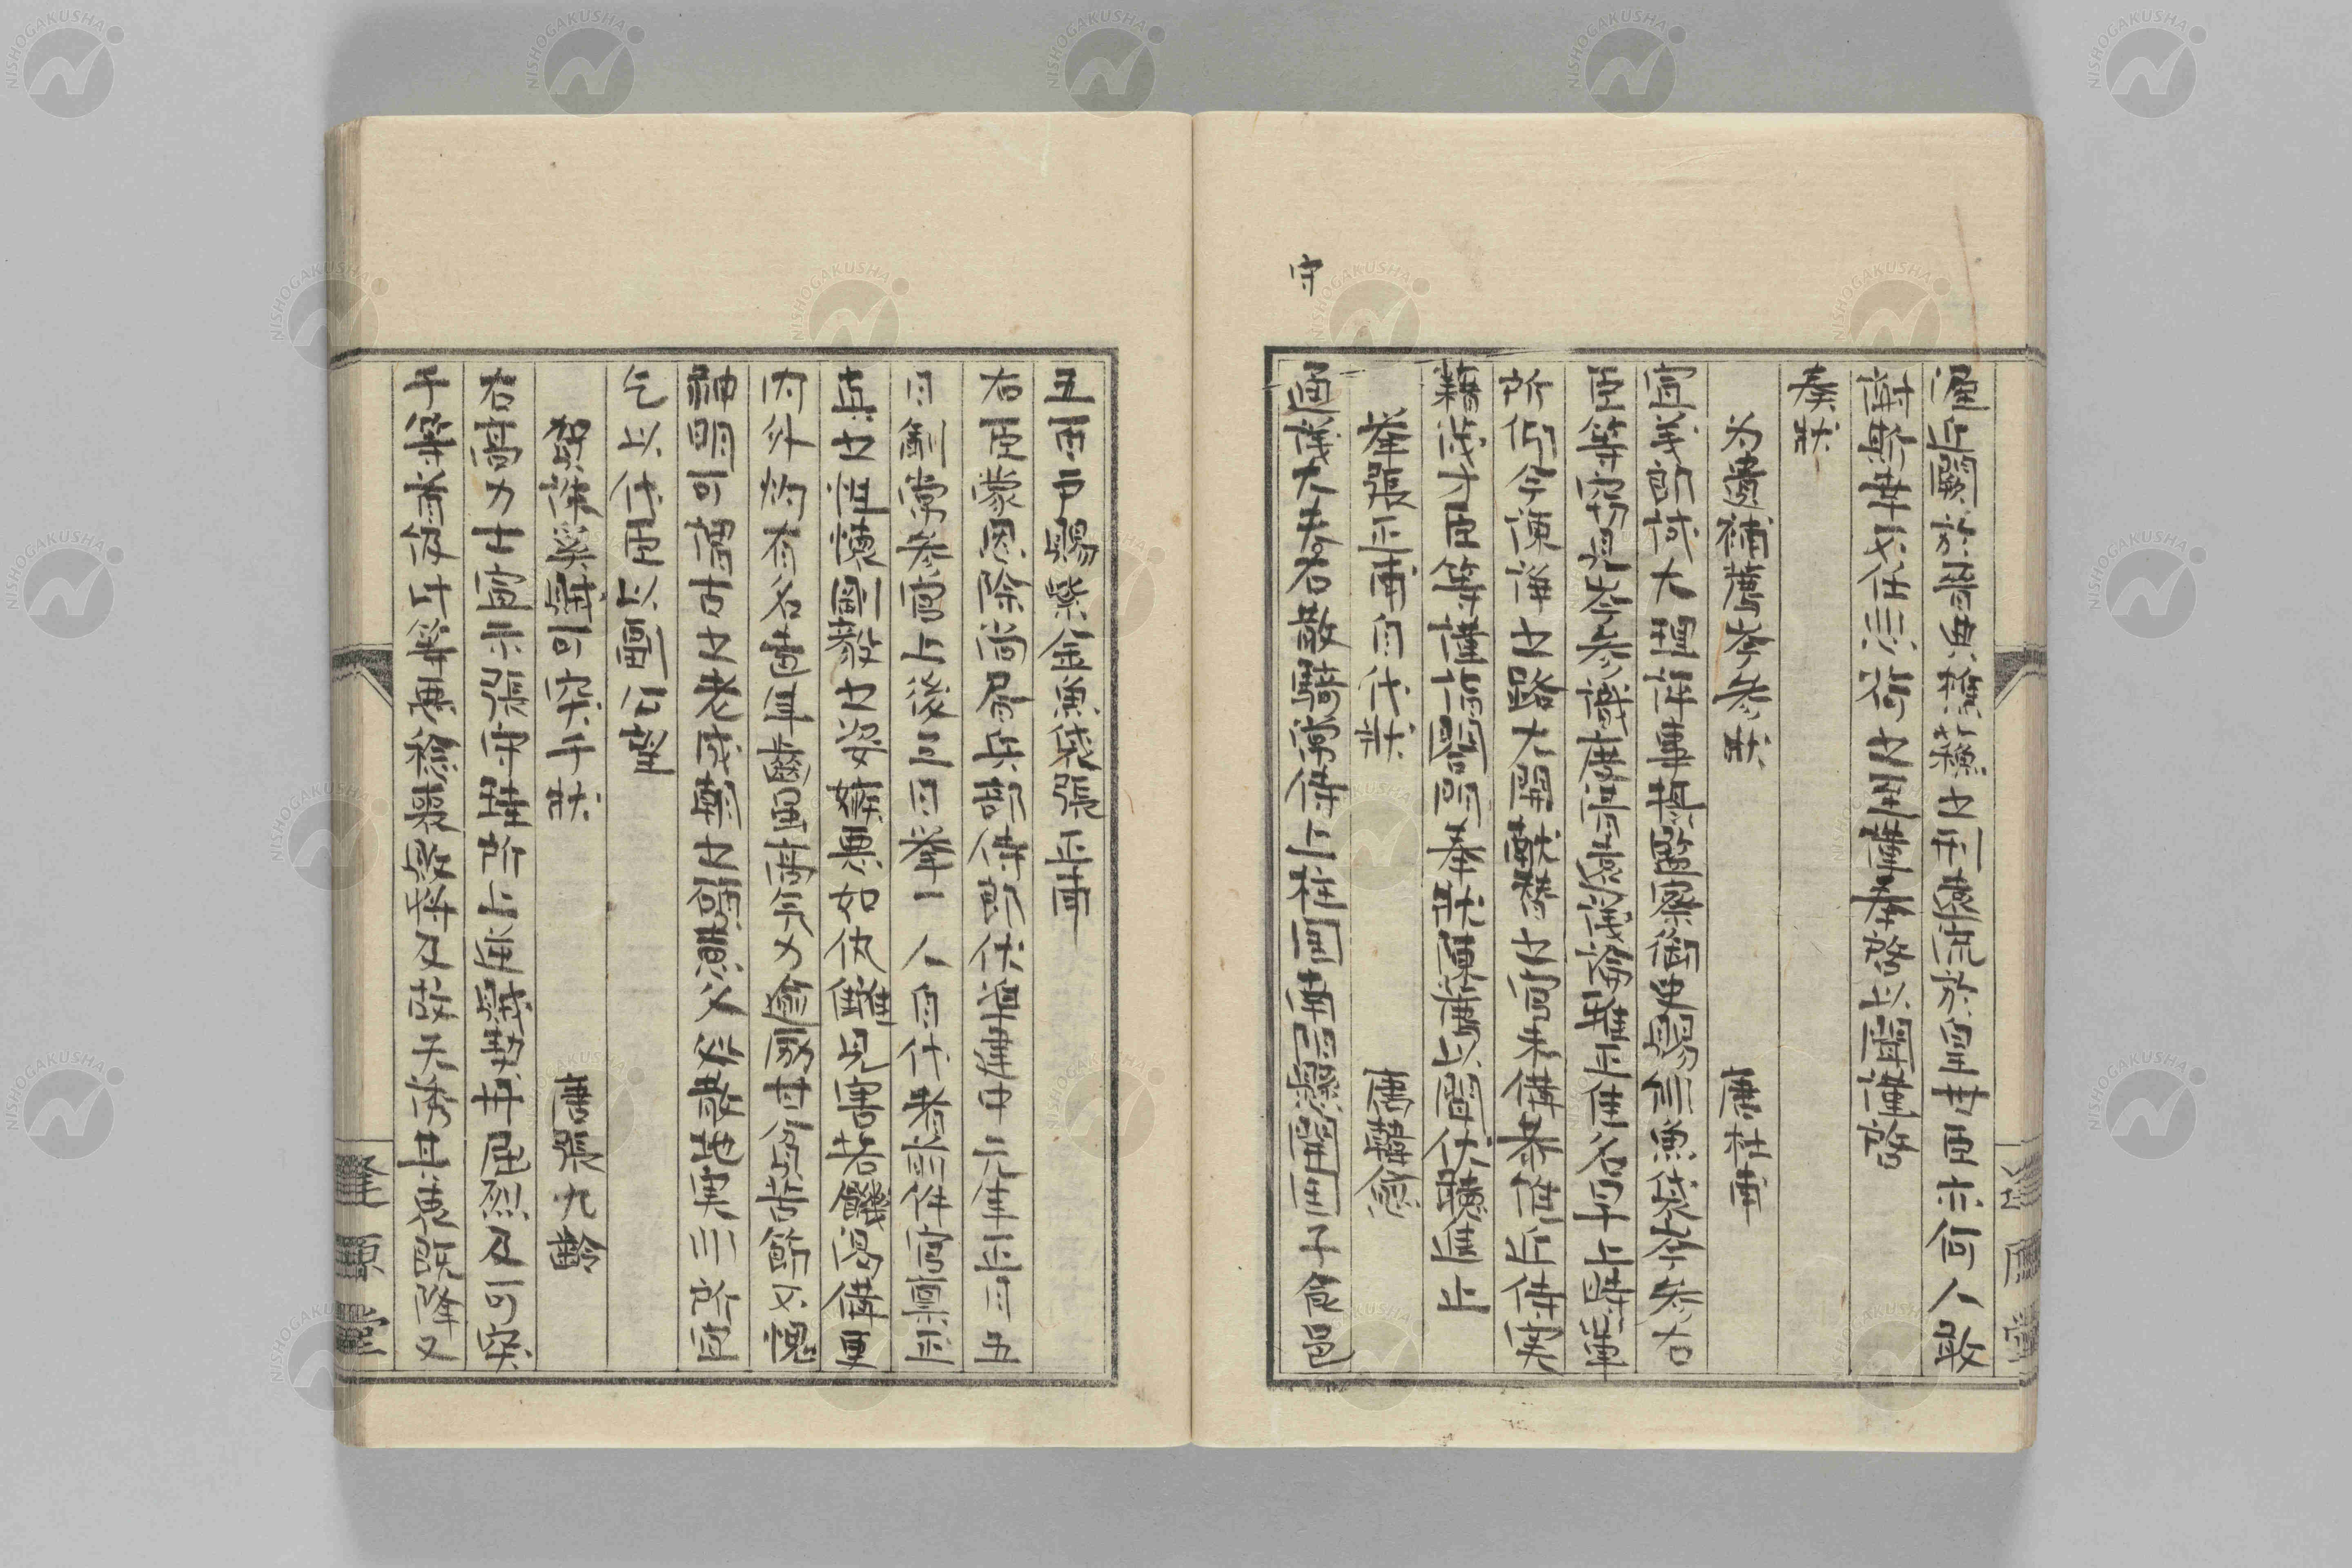 守
渥近闕於晉典樵蘇之刑遠流於皇代臣亦何人敢
謝斯幸不任悲荷之至謹奉啓以聞謹啓
奏狀
為遺補薦岑參狀　唐杜甫
宣義郎試大理評事攝監察御史賜緋魚袋岑參右
臣等竊見岑參識度清遠議論雅正佳名早上時輩
所仰今諫諍之路大開獻替之官未備恭惟近侍實
藉茂才臣等謹詣閤門奉狀陳薦以聞伏聽進止
舉張正甫自代狀　唐韓愈
通議大夫右散騎常侍上柱國南陽縣開國子食邑
五百户賜紫金魚袋張正甫
右臣蒙恩除尚書兵部侍郎伏準建中元年正月五
日制常參官上後三日舉一人自代者前件官稟正
直之性懷剛毅之姿嫉惡如仇讎見害若饑渴備更
内外灼有名聲年齒雖高氣力逾勵甘貧苦節不愧
神明可謂古之老成朝之碩德久處散地實非所宜
乞以代臣以副公望
賀誅奚賊可突干狀　唐張九齡
右高力士宣示張守珪所上逆賊契丹屈烈及可突
干等首級此等惡稔喪敗將及故天誘其衷既降又